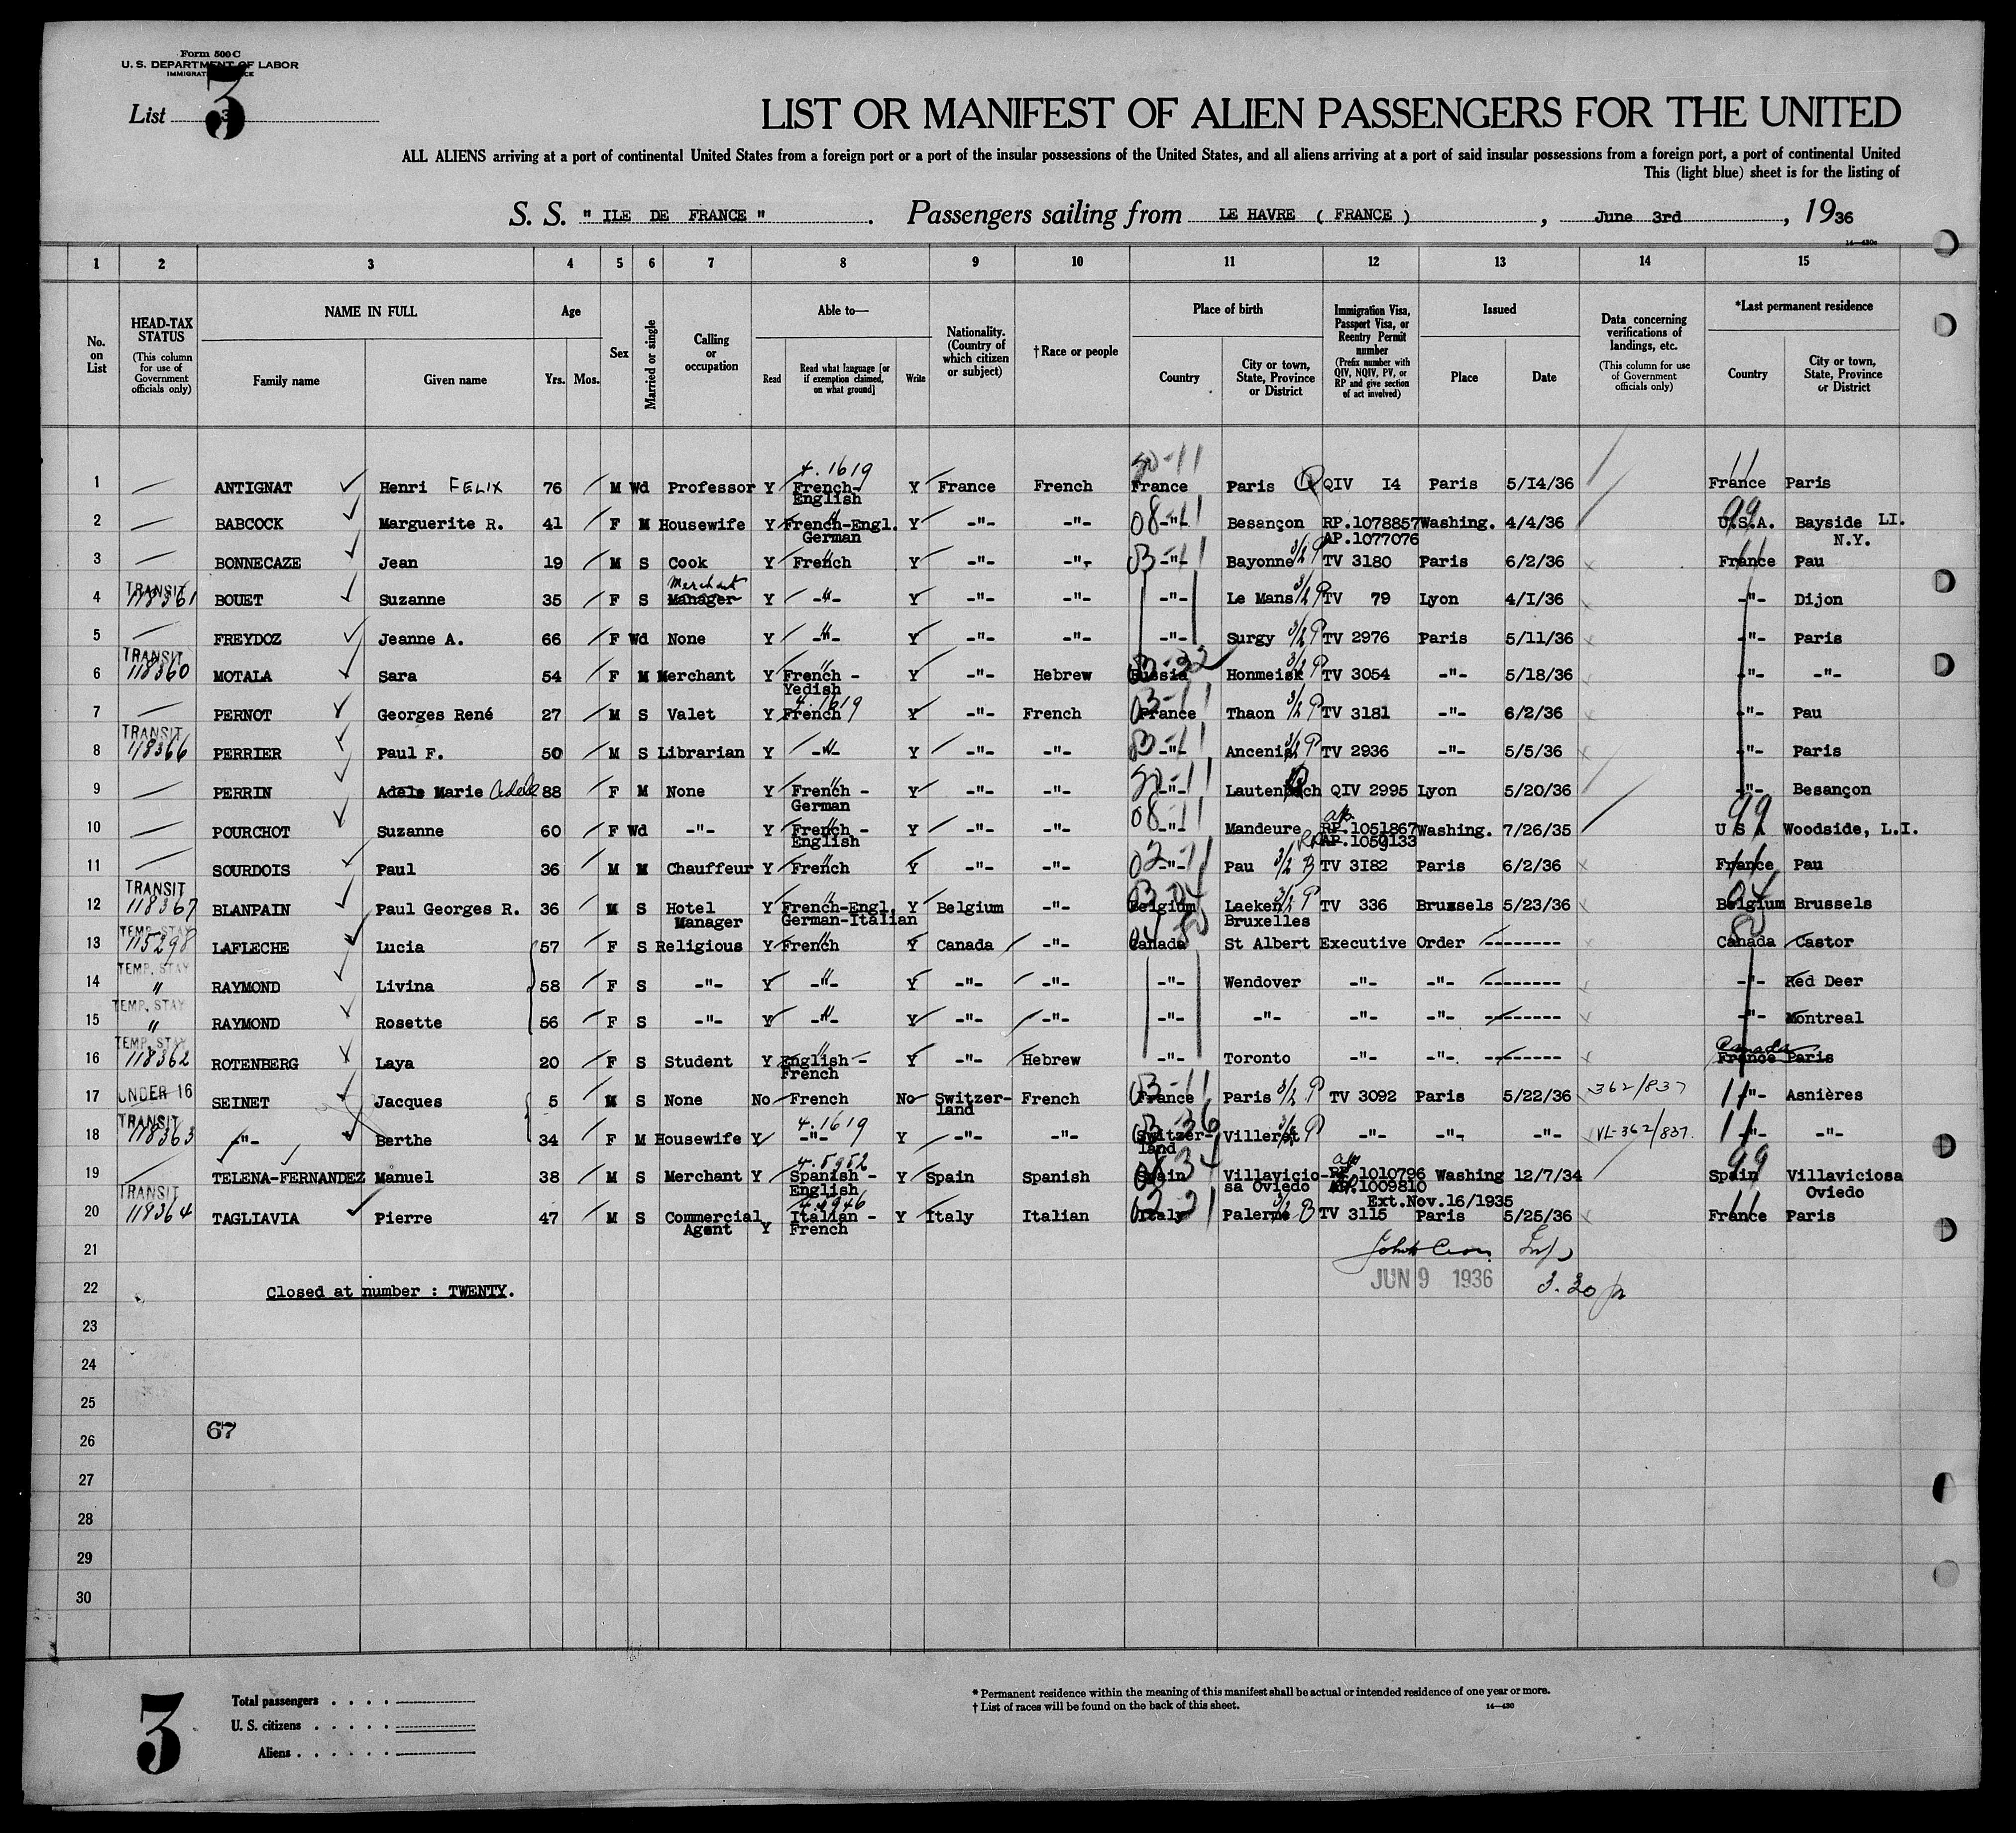 Form 500 C
U. S. DEPARTMENT OF LABOR
List 3
LIST OR MANIFEST OF ALIEN PASSENGERS FOR THE UNITED
ALL ALIENS arriving at a port of continental United States from a foreign port or a port of the insular possessions of the United States, and all aliens arriving at a port of said insular possessions from a foreign port, a port of continental United
This (light blue) sheet is for the listing of
S. S. " ILE DE FRANCE " . Passengers sailing from LE HAVRE ( FRANCE ) , June 3rd , 1936
1 2 3 4 5 6 7 8 9 10 11 12 13 14 15
No. on List
HEAD-TAX STATUS (This column for use of Government officials only)
NAME IN FULL Family name Given name
Age Yrs. Mos.
Sex
Married or single
Calling or occupation
Able to— Read Read what language [or if exemption claimed, on what ground] Write
Nationality. (Country of which citizen or subject)
† Race or people
Place of birth Country City or town, State, Province or District
Immigration Visa, Passport Visa, or Reentry Permit number (Prefix number with QIV, NQIV, PV, or RP and give section of act involved)
Issued Place Date
Data concerning verifications of landings, etc. (This column for use of Government officials only)
*Last permanent residence Country City or town, State, Province or District
1 — ANTIGNAT Henri FELIX 76 M Wd Professor Y 4.1619 French-English Y France French 50-11 France Paris QIV I4 Paris 5/I4/36 11 France Paris
2 — BABCOCK Marguerite R. 41 F M Housewife Y French-Engl. German Y -"- -"- 08-11 -"- Besançon RP.1078857 AP.1077076 Washing. 4/4/36 99 U.S.A. Bayside LI. N.Y.
3 — BONNECAZE Jean 19 M S Cook Y French Y -"- -"- -"- Bayonne 3/2 P TV 3180 Paris 6/2/36 11 France Pau
4 TRANSIT 118361 BOUET Suzanne 35 F S Merchant Manager Y -"- Y -"- -"- -"- Le Mans 3/2 P TV 79 Lyon 4/I/36 -"- Dijon
5 — FREYDOZ Jeanne A. 66 F Wd None Y -"- Y -"- -"- -"- Surgy 3/2 P TV 2976 Paris 5/11/36 -"- Paris
6 TRANSIT 118360 MOTALA Sara 54 F M Merchant Y French - Yedish Y -"- Hebrew Russia Honmeisk 3/2 P TV 3054 -"- 5/18/36 -"- -"-
7 — PERNOT Georges René 27 M S Valet Y 4.1619 French Y -"- French 03-11 France Thaon 3/2 P TV 3181 -"- 6/2/36 -"- Pau
8 TRANSIT 118366 PERRIER Paul F. 50 M S Librarian Y -"- Y -"- -"- -"- Ancenis 3/2 P TV 2936 -"- 5/5/36 -"- Paris
9 — PERRIN Adele Marie Adele 88 F M None Y French - German Y -"- -"- 50-11 -"- Lautenbach QIV 2995 Lyon 5/20/36 -"- Besançon
10 — POURCHOT Suzanne 60 F Wd -"- Y French - English Y -"- -"- 08-11 -"- Mandeure RP.1051867 AP.1059133 Washing. 7/26/35 99 U S A Woodside, L.I.
11 — SOURDOIS Paul 36 M M Chauffeur Y French Y -"- -"- 02-11 -"- Pau 3/2 B TV 3I82 Paris 6/2/36 11 France Pau
12 TRANSIT 118367 BLANPAIN Paul Georges R. 36 M S Hotel Manager Y French-Engl. German-Italian Y Belgium -"- 03-04 Belgium Laeken 3/2 P Bruxelles TV 336 Brussels 5/23/36 04 Belgium Brussels
13 TEMP. STAY 115298 LAFLECHE Lucia 57 F S Religious Y French Y Canada -"- 04 80 Canada St Albert Executive Order -------- 80 Canada Castor
14 TEMP. STAY " RAYMOND Livina 58 F S -"- Y -"- Y -"- -"- -"- Wendover -"- -"- -------- -"- Red Deer
15 TEMP. STAY " RAYMOND Rosette 56 F S -"- Y -"- Y -"- -"- -"- -"- -"- -"- -------- -"- Montreal
16 TEMP. STAY 118362 ROTENBERG Laya 20 F S Student Y English - French Y -"- Hebrew -"- Toronto -"- -"- -------- Canada France Paris
17 UNDER 16 SEINET Jacques 5 M S None No French No Switzer-land French 03-11 France Paris 3/2 P TV 3092 Paris 5/22/36 362/837 11 -"- Asnières
18 TRANSIT 118363 -"- Berthe 34 F M Housewife Y 4.1619 -"- Y -"- -"- 03-36 Switzer-land Villeret 3/2 P -"- -"- -"- VL-362/837. 11 -"- -"-
19 TELENA-FERNANDEZ Manuel 38 M S Merchant Y 4.5952 Spanish - English Y Spain Spanish 08 34 Spain Villavicio-sa Oviedo RP.1010796 AP.1009810 Ext.Nov.16/1935 Washing 12/7/34 99 Spain Villaviciosa Oviedo
20 TRANSIT 118364 TAGLIAVIA Pierre 47 M S Commercial Agent Y Italian - French Y Italy Italian 02-21 Italy Palermo 3/2 B TV 3115 Paris 5/25/36 11 France Paris
21
22 Closed at number : TWENTY. JUN 9 1936 3.30 p
23
24
25
67
26
27
28
29
30
3
Total passengers . . . .
U. S. citizens . . . . .
Aliens . . . . . .
* Permanent residence within the meaning of this manifest shall be actual or intended residence of one year or more.
† List of races will be found on the back of this sheet. 14—430